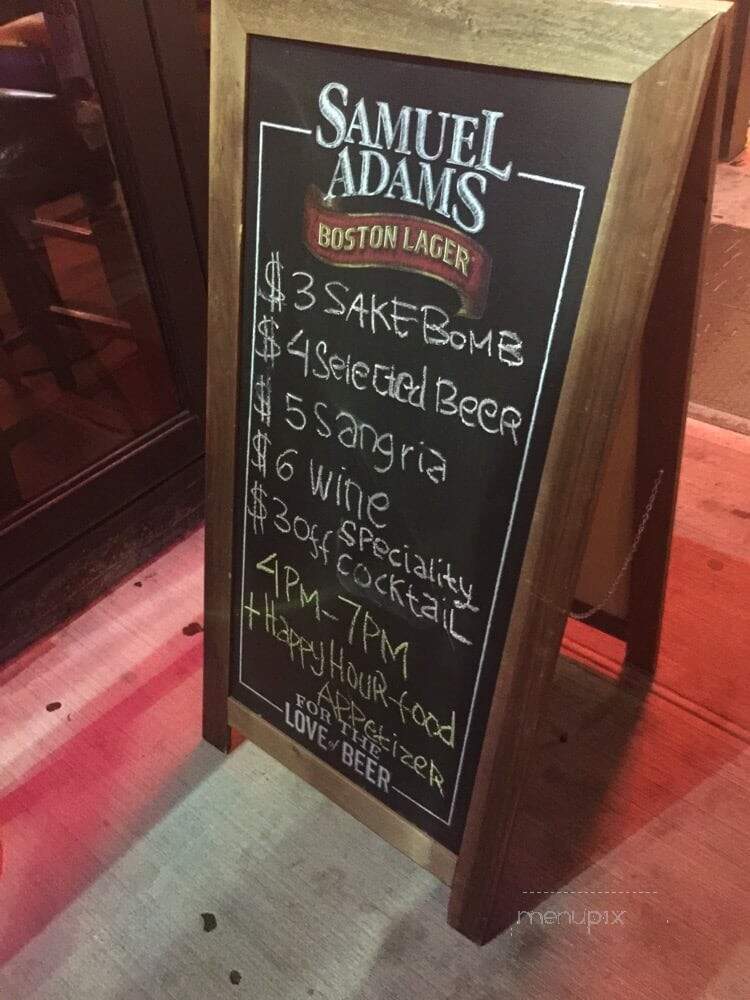 SAMUEL
ADAMS
BOSTON LAGER
$3 SAKE BOMB
$4 Selected BEER
$5 Sangria
$6 Wine
$3 off SPECIALITY
COCKTAIL
4PM-7PM
+ Happy HOUR food
APPetizeR
FOR THE
LOVE of BEER
menupix